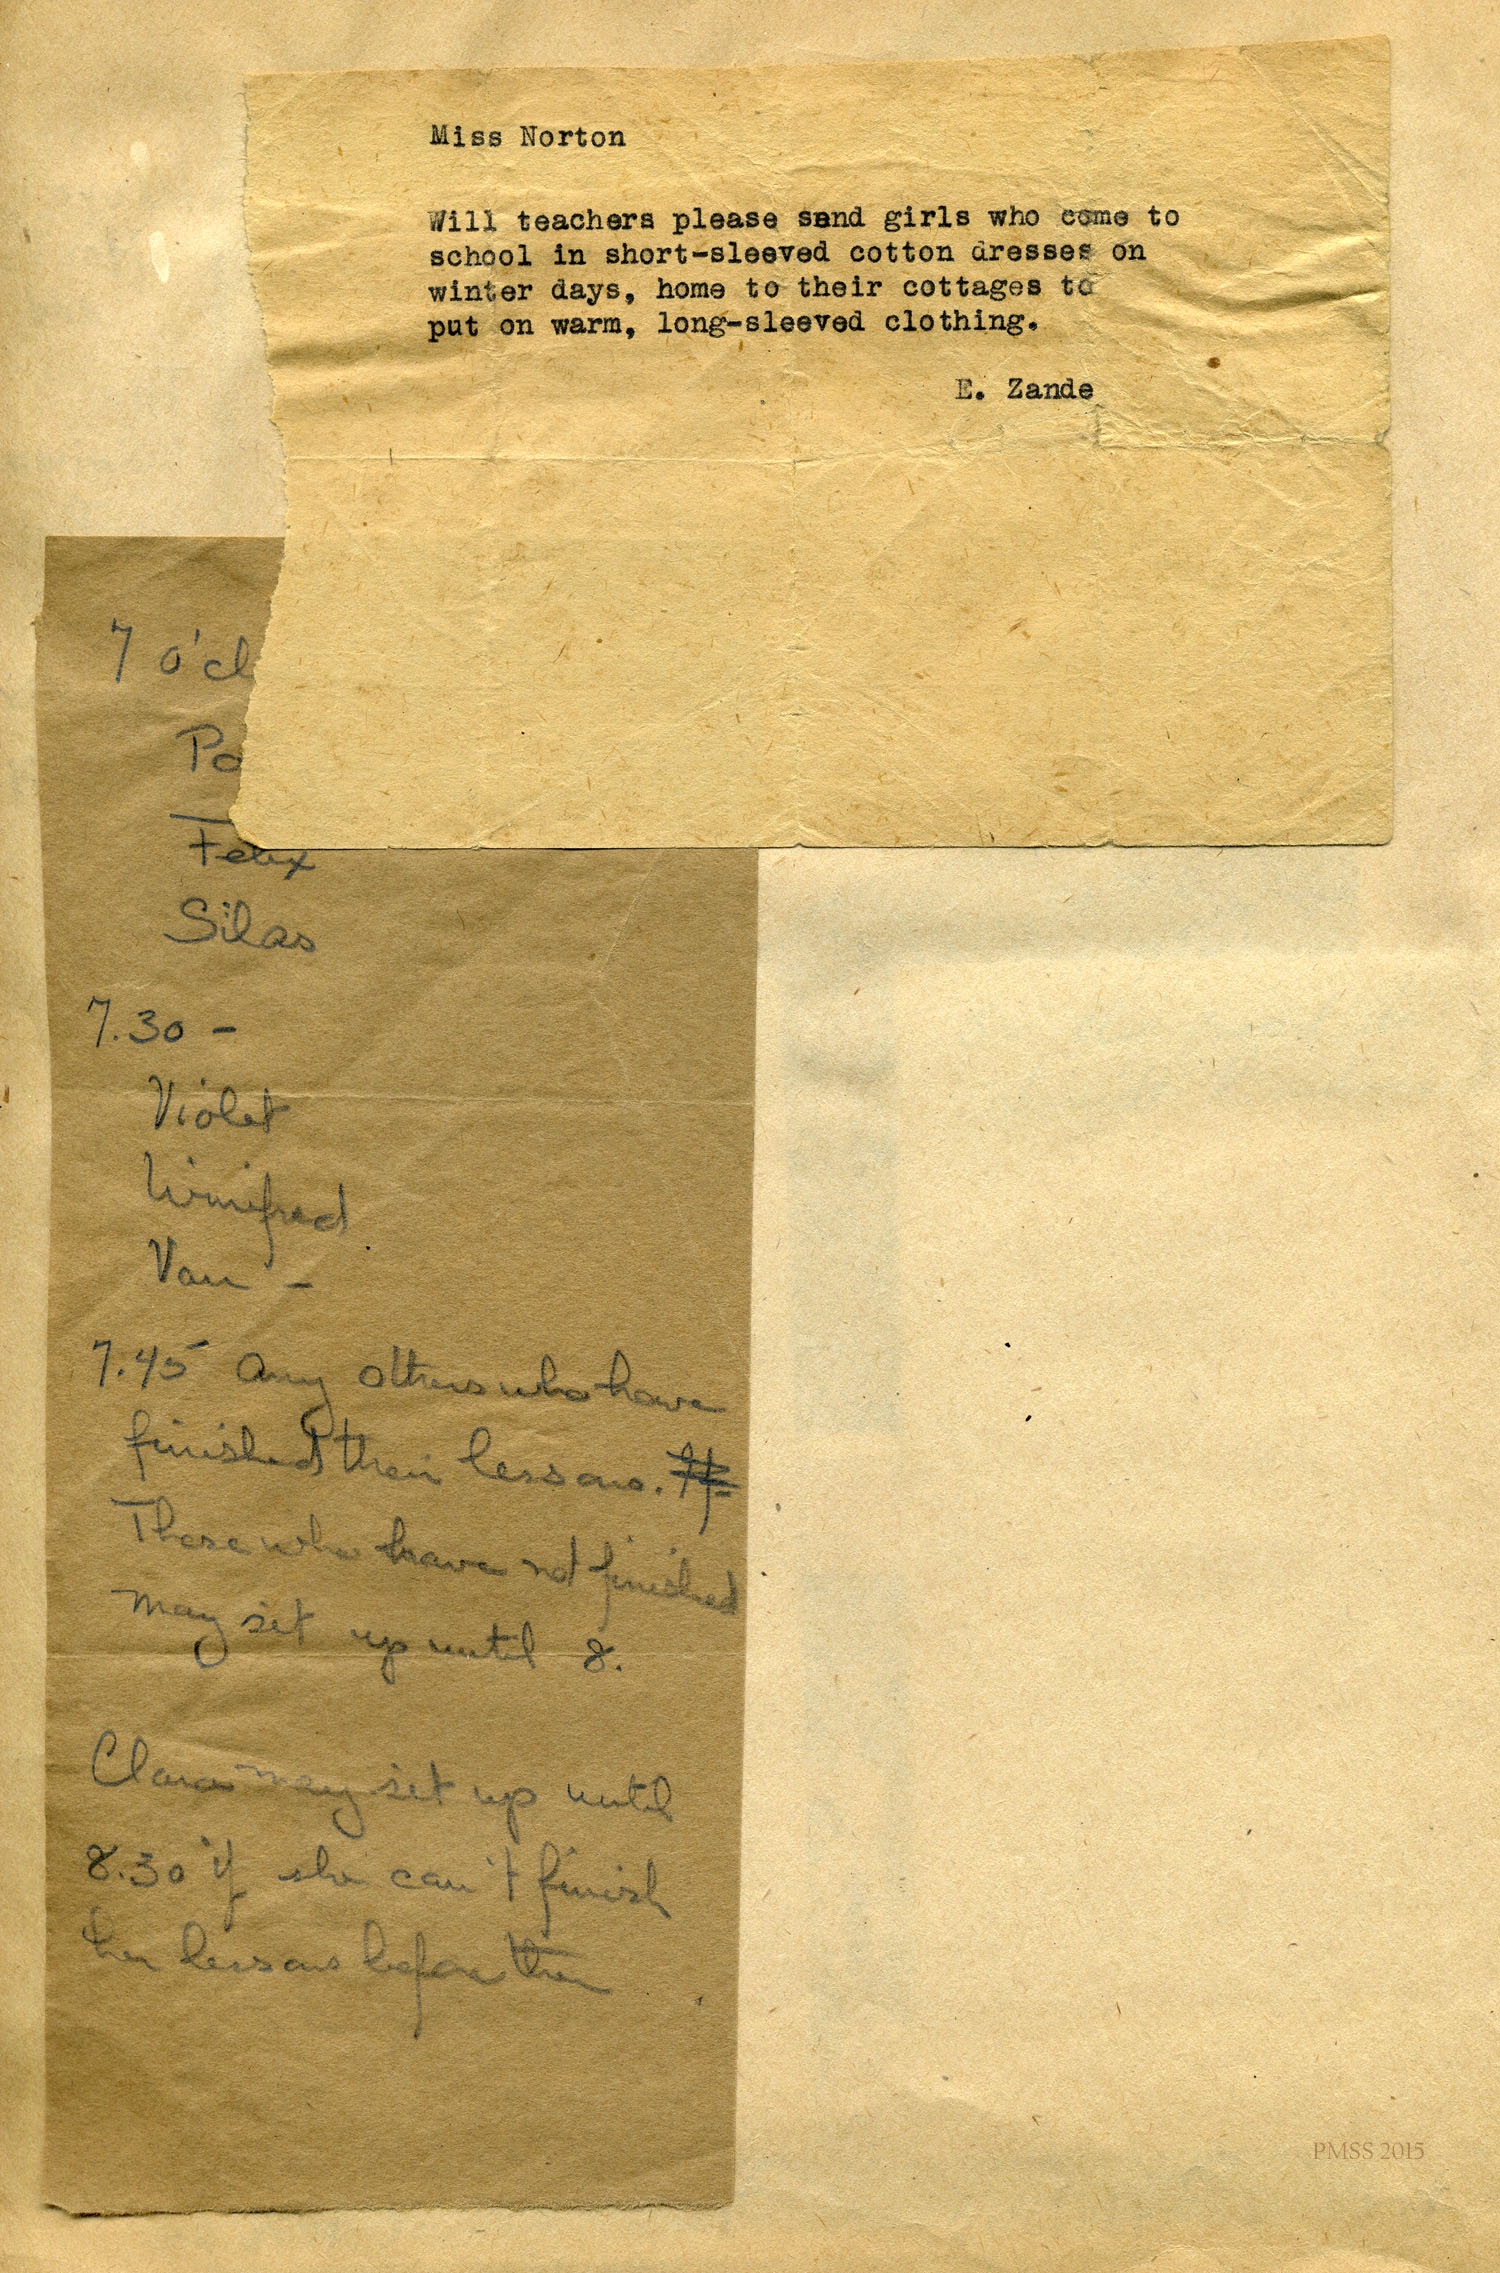 Miss Norton
Will teachers please send girls who come to
school in short-sleeved cotton dresses on
winter days, home to their cottages to
put on warm, long-sleeved clothing.
E. Zande
7 o'cl
Po
Felix
Silas
7.30 -
Violet
Winifred
Van -
7.45 Any others who have
finished their lessons.
Those who have not finished
may set up until 8.
Clara may set up until
8.30 if she can't finish
her lessons before then
PMSS 2015